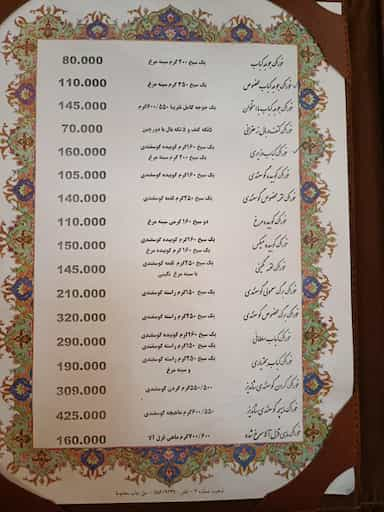 خوراک جوجه کباب یک سیخ ۲۰۰ گرم سینه مرغ 80.000
خوراک جوجه کباب مخصوص یک سیخ ۳۵۰ گرم سینه مرغ 110.000
خوراک جوجه کباب با استخوان یک جوجه کامل تقریبا ۶۰۰/۵۵۰گرم 145.000
خوراک کتف و بال زعفرانی ۵تکه کتف و ۵ تکه بال یا دورچین 70.000
خوراک کباب وزیری یک سیخ ۱۶۰گرم کوبیده گوسفندی
یک سیخ ۲۰۰ گرم سینه مرغ 160.000
خوراک کوبیده گوسفندی یک سیخ ۱۶۰گرم کوبیده گوسفندی 105.000
خوراک لقمه مخصوص گوسفندی یک سیخ ۲۵۰گرم لقمه گوسفندی 140.000
خوراک کوبیده مرغ دو سیخ ۱۶۰ گرمی سینه مرغ 110.000
خوراک کوبیده میکس یک سیخ ۱۶۰گرم کوبیده گوسفندی
یک سیخ ۱۶۰ گرم کوبیده مرغ 150.000
خوراک لقمه نگینی یک سیخ ۲۵۰گرم لقمه گوسفندی
با سینه مرغ نگینی 145.000
خوراک برگ معمولی گوسفندی یک سیخ ۱۵۰گرم راسته گوسفندی 210.000
خوراک برگ مخصوص گوسفندی یک سیخ ۲۵۰گرم راسته گوسفندی 320.000
خوراک کباب سلطانی یک سیخ ۱۶۰گرم کوبیده گوسفندی
یک سیخ ۱۵۰گرم راسته گوسفندی 290.000
خوراک کباب بختیاری یک سیخ ۲۵۰گرم راسته گوسفندی
و سینه مرغ 190.000
خوراک گردن گوسفندی شاندیز ۵۵۰/۵۰۰گرم گردن گوسفندی 309.000
خوراک ماهیچه گوسفندی شاندیز ۶۰۰/۵۵۰گرم ماهیچه گوسفندی 425.000
خوراک ماهی قزل آلا سرخ شده ۷۰۰/۶۰۰گرم ماهی قزل آلا 160.000